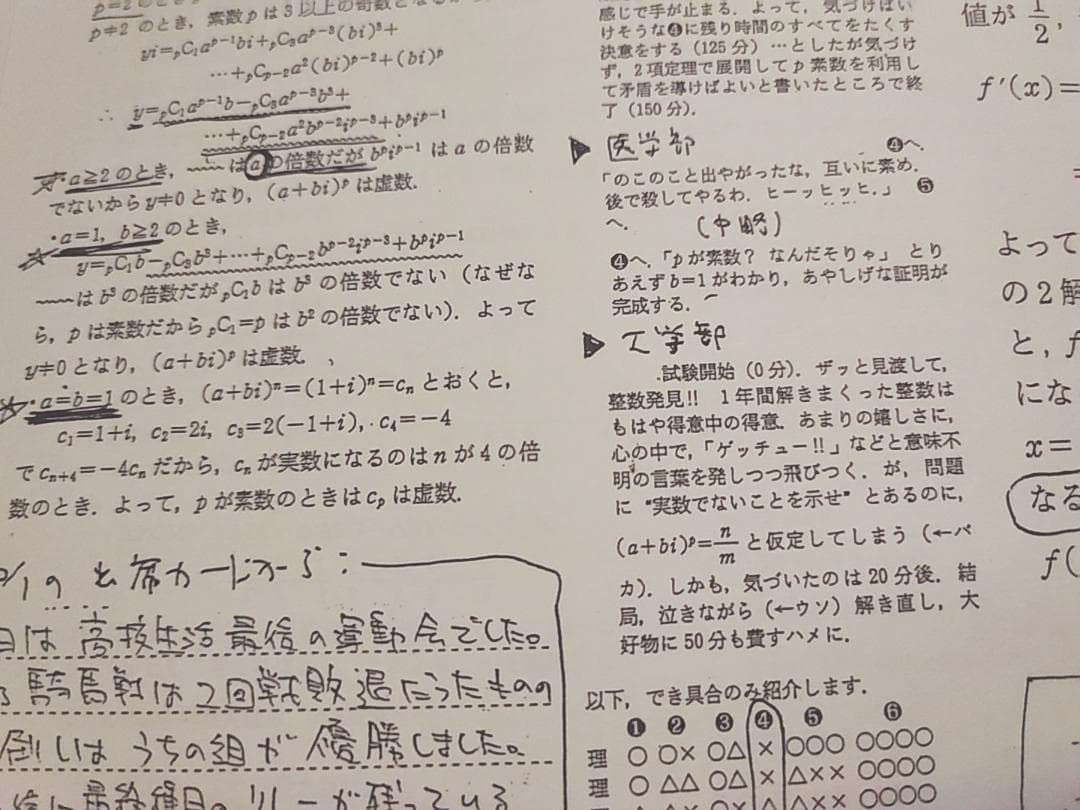 p=2のとき,
p≠2 のとき, 素数 p は 3 以上の奇数と
yi=ₚC₁aᵖ⁻¹bi+ₚC₃aᵖ⁻³(bi)³+
…+ₚCₚ₋₂a²(bi)ᵖ⁻²+(bi)ᵖ
∴ y=ₚC₁aᵖ⁻¹b−ₚC₃aᵖ⁻³b³+
…+ₚCₚ₋₂a²bᵖ⁻²iᵖ⁻³+bᵖiᵖ⁻¹
・a≧2 のとき, 〰〰 は a の倍数だが bᵖiᵖ⁻¹ は a の倍数
でないから y≠0 となり, (a+bi)ᵖ は虚数.
・a=1, b≧2 のとき,
y=ₚC₁b−ₚC₃b³+…+ₚCₚ₋₂bᵖ⁻²iᵖ⁻³+bᵖiᵖ⁻¹
〰〰は b³ の倍数だが ₚC₁b は b³ の倍数でない (なぜな
ら, p は素数だから ₚC₁=p は b² の倍数でない). よって
y≠0 となり, (a+bi)ᵖ は虚数.
・a=b=1 のとき, (a+bi)ⁿ=(1+i)ⁿ=cₙ とおくと,
c₁=1+i, c₂=2i, c₃=2(−1+i), c₄=−4
で cₙ₊₄=−4cₙ だから, cₙ が実数になるのは n が 4 の倍
数のとき. よって, p が素数のときは cₚ は虚数.
の出席カードから:
日は高校生活最後の運動会でした。
騎馬戦は2回戦敗退だったものの
倒しはうちの組が優勝しました。
感じで手が止まる. よって, 気づけばい
けそうな❹に残り時間のすべてをたくす
決意をする (125 分) …としたが気づけ
ず, 2 項定理で展開して p 素数を利用し
て矛盾を導けばよいと書いたところで終
了 (150 分).
▶ 医学部 ❹へ.
「のこのこと出やがったな, 互いに素め.
後で殺してやるわ. ヒーッヒッヒ.」 ❺
へ. (中略)
❹へ. 「p が素数? なんだそりゃ」 とり
あえず b=1 がわかり, あやしげな証明が
完成する.
▶ 工学部
試験開始 (0 分). ザッと見渡して,
整数発見!! 1 年間解きまくった整数は
もはや得意中の得意. あまりの嬉しさに,
心の中で, 「ゲッチュー!!」などと意味不
明の言葉を発しつつ飛びつく. が, 問題
に "実数でないことを示せ" とあるのに,
(a+bi)ᵖ=n/m と仮定してしまう (←バ
カ). しかも, 気づいたのは 20 分後. 結
局, 泣きながら (←ウソ) 解き直し, 大
好物に 50 分も費すハメに.
以下, でき具合のみ紹介します.
❶ ❷ ❸ ❹ ❺ ❻
理 ○ ○× ○△ × ○○○ ○○○○
理 ○ △△ ○△ × △×× ○○○○
値が 1/2,
f'(x)=
=
よって
の 2 解
と, f
にな
x=
なる
f(